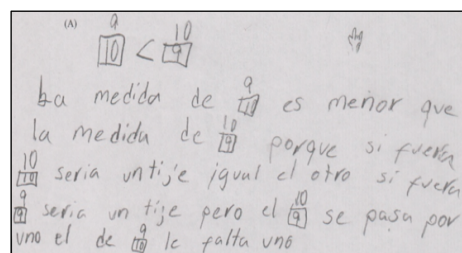 (A) 9/10 < 10/9
La medida de 9/10 es menor que
la medida de 10/9 porque si fuera
10/10 seria un tije igual el otro si fuera
9/9 seria un tije pero el 10/9 se pasa por
uno el de 9/10 le falta uno